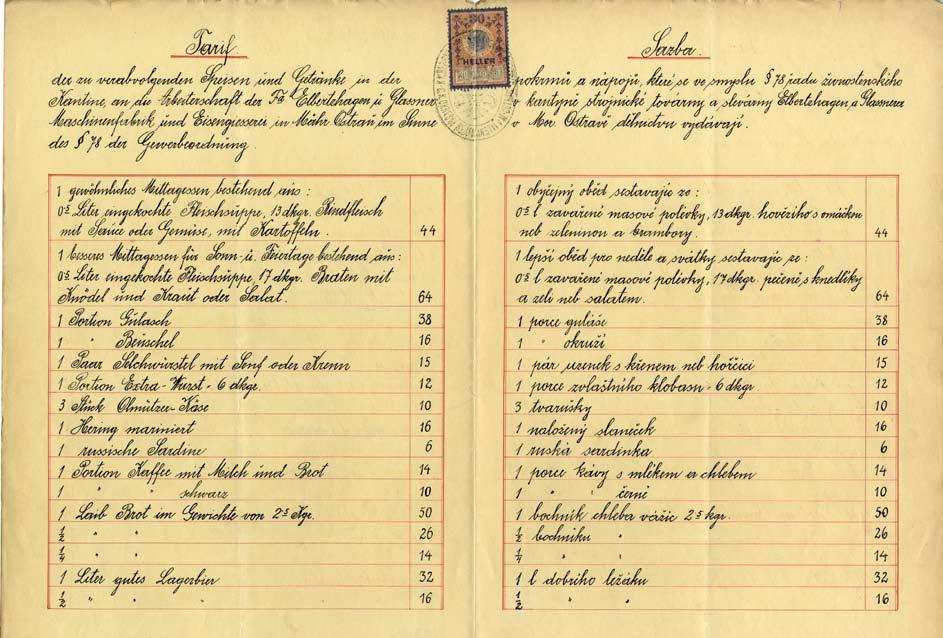 Tarif
der zu verabvolgenden Speisen und Getränke in der
Kantine, an die Arbeiterschaft der Fa Elbertzhagen u Glassner
Maschinenfabrik und Eisengiesserei in Mähr. Ostrau im Sinne
des § 78 der Gewerbeordnung.
1 gewöhnliches Mittagessen bestehend aus:
0⁵ Liter eingekochte Fleischsuppe, 13 dkgr. Rindfleisch
mit Sauce oder Gemüse, mit Kartoffeln. 44
1 besseres Mittagessen für Sonn- u. Feiertage bestehend aus:
0⁵ Liter eingekochte Fleischsuppe, 17 dkgr. Braten mit
Knödel und Kraut oder Salat. 64
1 Portion Gulasch 38
1 " Beuschel 16
1 Paar Selchwürstel mit Senf oder Krenn 15
1 Portion Extra-Wurst - 6 dkgr. 12
3 Stück Olmützer-Käse 10
1 Hering mariniert 16
1 russische Sardine 6
1 Portion Kaffee mit Milch und Brot 14
1 " " schwarz 10
1 Laib Brot im Gewichte von 2⁵ Kgr. 50
½ " " " 26
¼ " " " 14
1 Liter gutes Lagerbier 32
½ " " " 16
30
HELLER
Sazba.
pokrmů a nápojů, které se ve smyslu § 78 řadu živnostenského
v kantyně strojnické továrny a slévárny Elbertzhagen a Glassnera
v Mor. Ostravě dělnictvu vydávají.
1 obyčejný oběd sestavajíc ze:
0⁵ l zavařené masové polévky, 13 dkgr. hovězího s omáčkou
neb zeleninou a brambory. 44
1 lepší oběd pro neděle a svátky sestavajíc ze:
0⁵ l zavařené masové polévky, 17 dkgr. pečeně s knedlíky
a zelí neb salatem. 64
1 porce guláše 38
1 " okruží 16
1 pár uzenek s křenem neb hořčicí 15
1 porce zvlaštního klobasu - 6 dkgr. 12
3 tvarůsky 10
1 naložený slaneček 16
1 ruská sardinka 6
1 porce kávy s mlékem a chlebem 14
1 " " černé 10
1 bochník chleba vážíc 2⁵ kgr. 50
½ bochníku " 26
¼ " " 14
1 l dobrího ležáku 32
½ " " 16